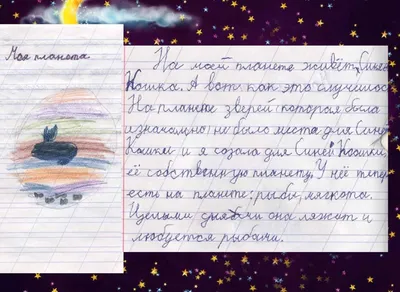 Моя планета
На моей планете живёт, Синея
Кошка. А вот как это случилось
На планете зверей (которая была
изначально) не было места для Синей
Кошки и я созала для Синей Кошки
её собственную планету. У неё теперь
есть на планете: рыбы, мягкота.
Целыми днями она ляжит и
любуется рыбачи.